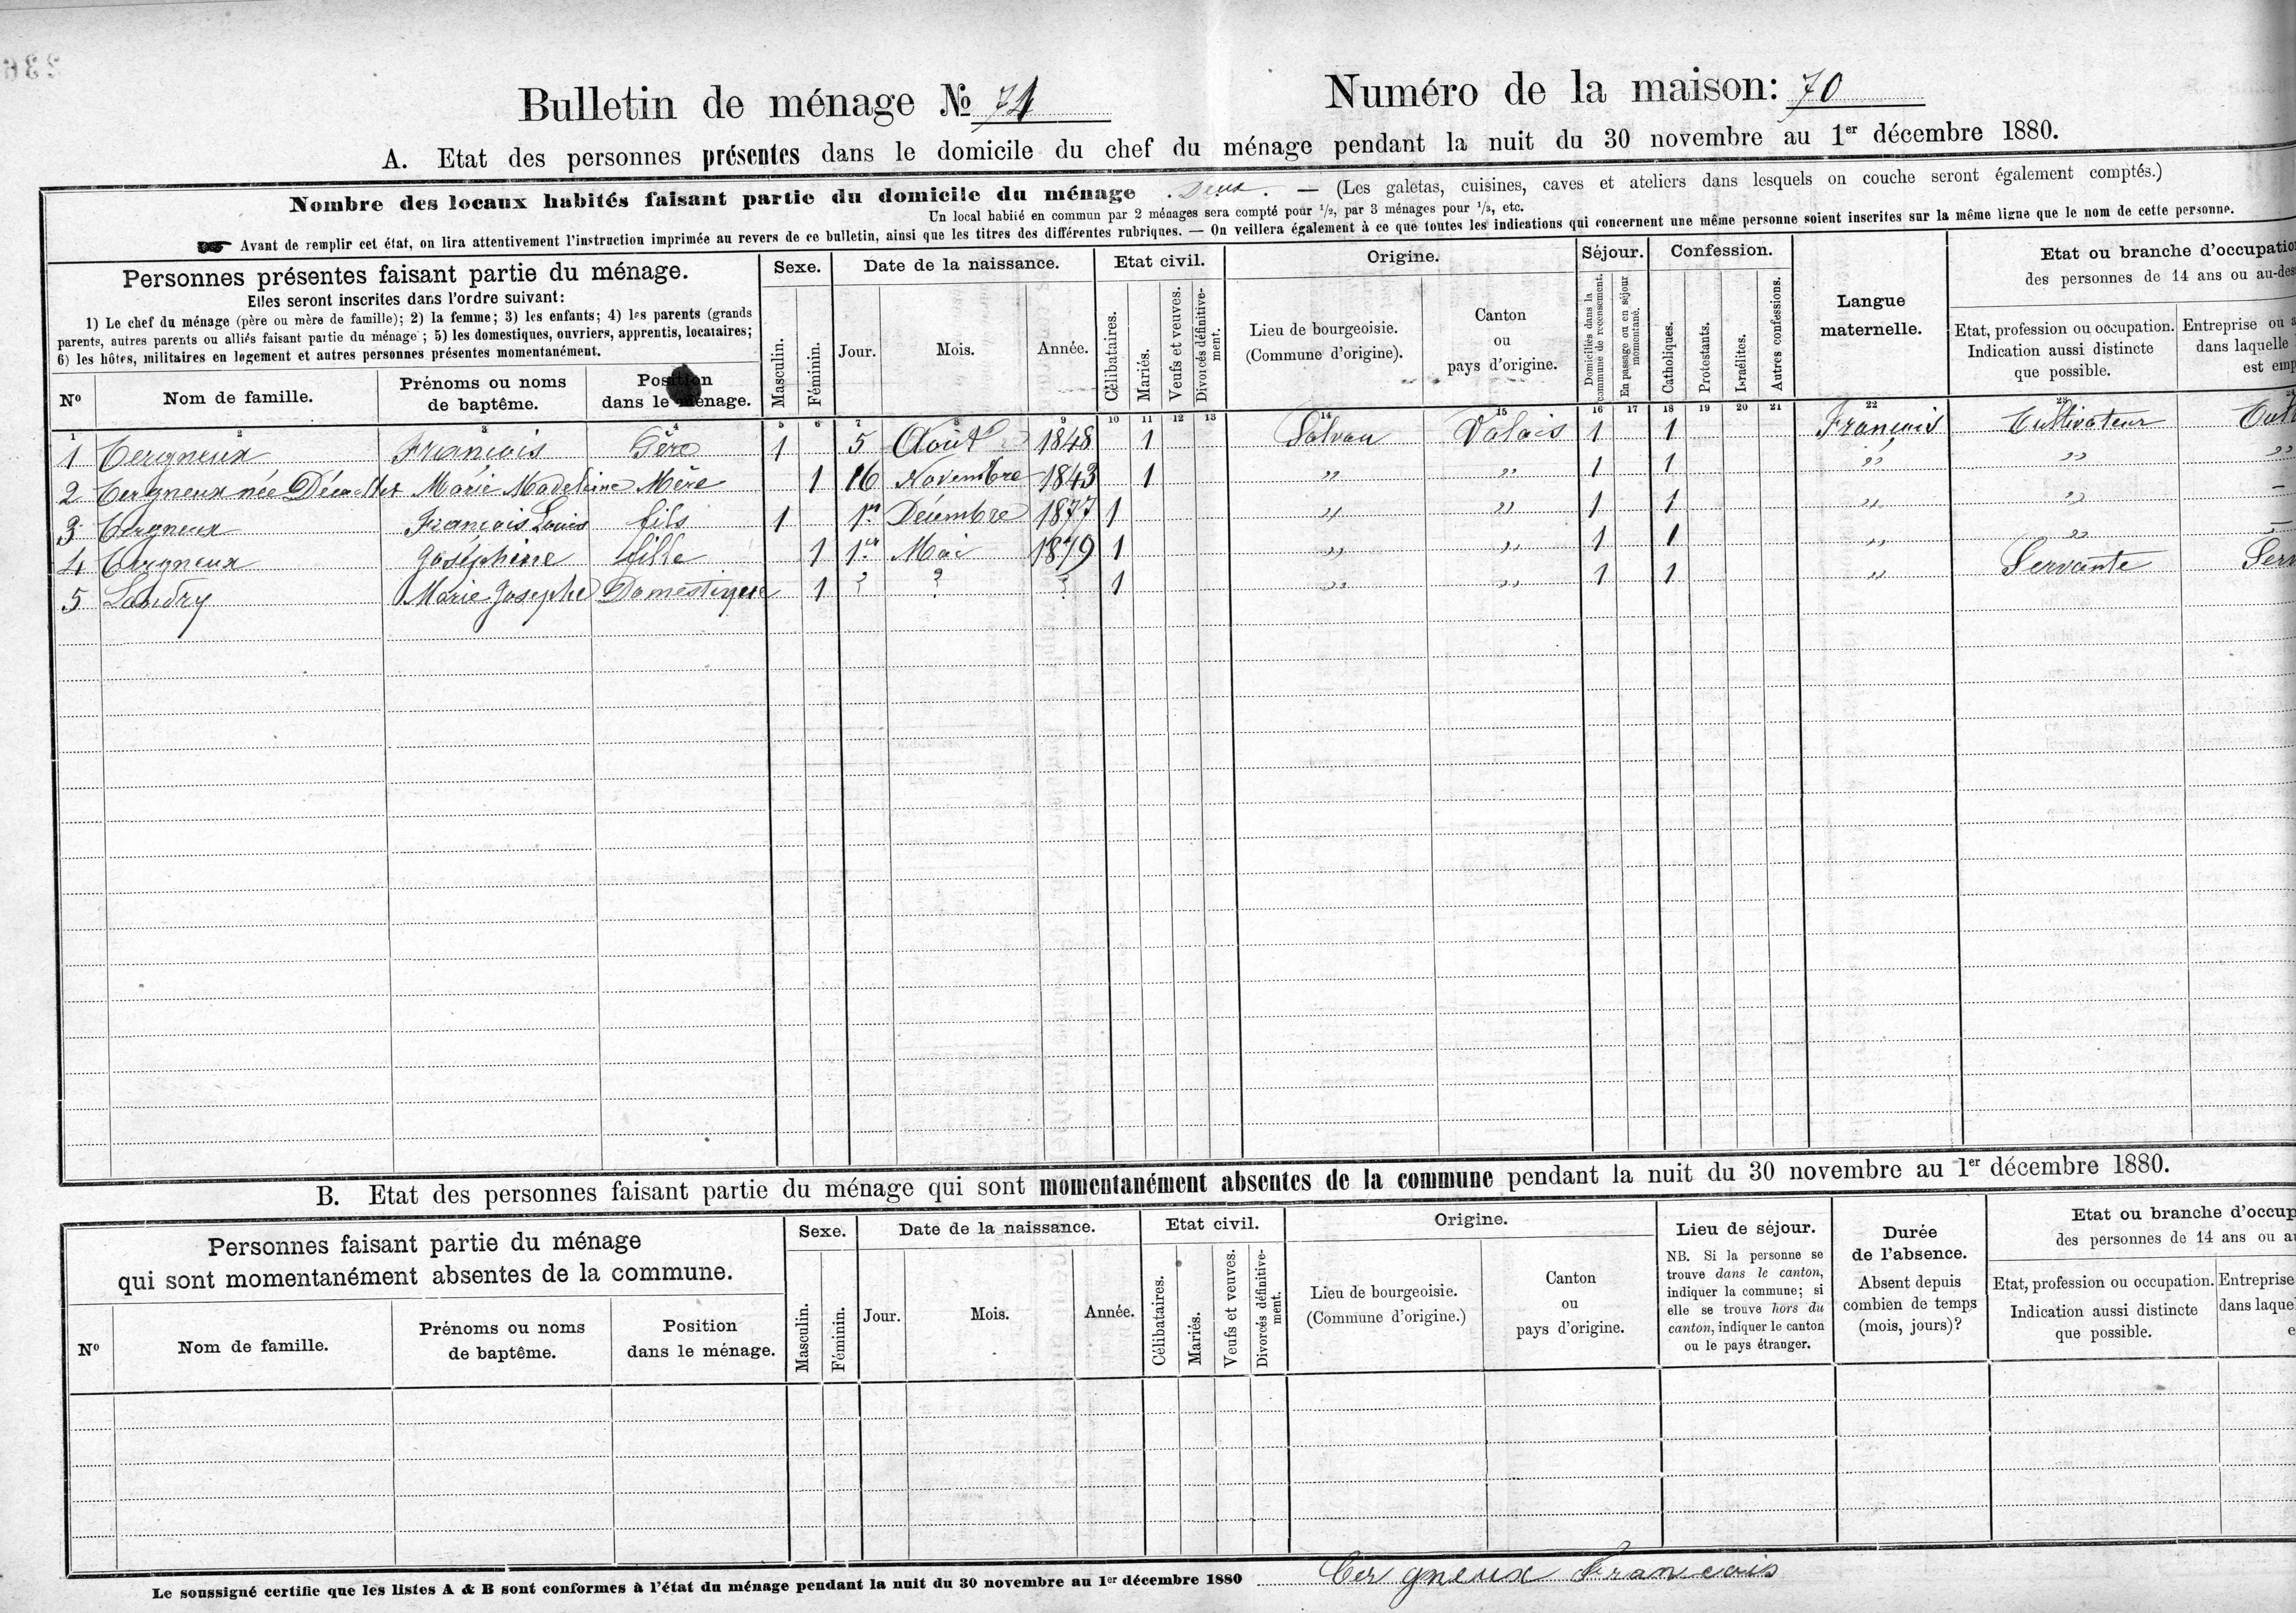 Bulletin de ménage № 71
Numéro de la maison: 70
A. Etat des personnes présentes dans le domicile du chef du ménage pendant la nuit du 30 novembre au 1er décembre 1880.
Nombre des locaux habités faisant partie du domicile du ménage deux. — (Les galetas, cuisines, caves et ateliers dans lesquels on couche seront également comptés.)
Un local habité en commun par 2 ménages sera compté pour 1/2, par 3 ménages pour 1/3, etc.
Avant de remplir cet état, on lira attentivement l'instruction imprimée au revers de ce bulletin, ainsi que les titres des différentes rubriques. — On veillera également à ce que toutes les indications qui concernent une même personne soient inscrites sur la même ligne que le nom de cette personne.
Personnes présentes faisant partie du ménage.
Elles seront inscrites dans l'ordre suivant:
1) Le chef du ménage (père ou mère de famille); 2) la femme; 3) les enfants; 4) les parents (grands
parents, autres parents ou alliés faisant partie du ménage; 5) les domestiques, ouvriers, apprentis, locataires;
6) les hôtes, militaires en logement et autres personnes présentes momentanément.
Nº
Nom de famille.
Prénoms ou noms
de baptême.
Position
dans le ménage.
Sexe.
Masculin.
Féminin.
Date de la naissance.
Jour.
Mois.
Année.
Etat civil.
Célibataires.
Mariés.
Veufs et veuves.
Divorcés définitive-
ment.
Origine.
Lieu de bourgeoisie.
(Commune d'origine).
Canton
ou
pays d'origine.
Séjour.
Domiciliés dans la
commune de recensement.
En passage ou en séjour
momentané.
Confession.
Catholiques.
Protestants.
Israélites.
Autres confessions.
Langue
maternelle.
Etat ou branche d'occupatio
des personnes de 14 ans ou au-des
Etat, profession ou occupation.
Indication aussi distincte
que possible.
Entreprise ou
dans laquelle
est emp
1 2 3 4 5 6 7 8 9 10 11 12 13 14 15 16 17 18 19 20 21 22 23 24
1 Cergneux François Père 1 5 Août 1848 1 Salvan Valais 1 1 Français Cultivateur Cult
2 Cergneux née Décaillet Marie Madeleine Mère 1 16 Novembre 1843 1 " " 1 1 " " "
3 Cergneux François Louis fils 1 1er Décembre 1877 1 " " 1 1 " " –
4 Cergneux Joséphine fille 1 1er Mai 1879 1 " " 1 1 " " –
5 Landry Marie Josephe Domestique 1 ? ? ? 1 " " 1 1 " Servante Serv
B. Etat des personnes faisant partie du ménage qui sont momentanément absentes de la commune pendant la nuit du 30 novembre au 1er décembre 1880.
Personnes faisant partie du ménage
qui sont momentanément absentes de la commune.
Nº
Nom de famille.
Prénoms ou noms
de baptême.
Position
dans le ménage.
Sexe.
Masculin.
Féminin.
Date de la naissance.
Jour.
Mois.
Année.
Etat civil.
Célibataires.
Mariés.
Veufs et veuves.
Divorcés définitive-
ment.
Origine.
Lieu de bourgeoisie.
(Commune d'origine.)
Canton
ou
pays d'origine.
Lieu de séjour.
NB. Si la personne se
trouve dans le canton,
indiquer la commune; si
elle se trouve hors du
canton, indiquer le canton
ou le pays étranger.
Durée
de l'absence.
Absent depuis
combien de temps
(mois, jours)?
Etat ou branche d'occup
des personnes de 14 ans ou a
Etat, profession ou occupation.
Indication aussi distincte
que possible.
Entreprise
dans laque
e
Le soussigné certifie que les listes A & B sont conformes à l'état du ménage pendant la nuit du 30 novembre au 1er décembre 1880 Cergneux Francois